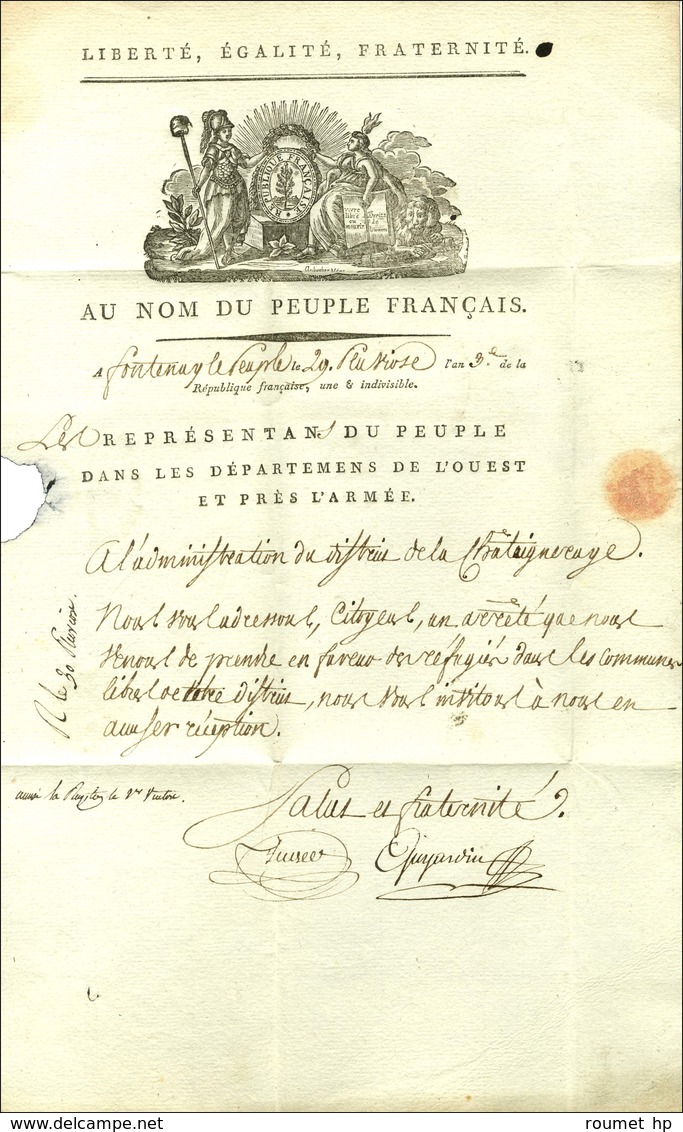 LIBERTÉ, ÉGALITÉ, FRATERNITÉ.
RÉPUBLIQUE FRANÇAISE
vivre libre ou mourir
AU NOM DU PEUPLE FRANÇAIS.
A fontenay le Peuple le 29. Pluviose l'an 3.e de la
République française, une & indivisible.
Les REPRÉSENTANS DU PEUPLE
DANS LES DÉPARTEMENS DE L'OUEST
ET PRÈS L'ARMÉE.
A l'administration du district de la Chataigneraye.
Nous vous adressons, Citoyens, un arrêté que nous
venons de prendre en faveur des réfugiés dans les communes
libres de votre district, nous vous invitons à nous en
accuser réception.
R le 30 Pluviose.
Salut et fraternité.
Guyardin
roumet hp